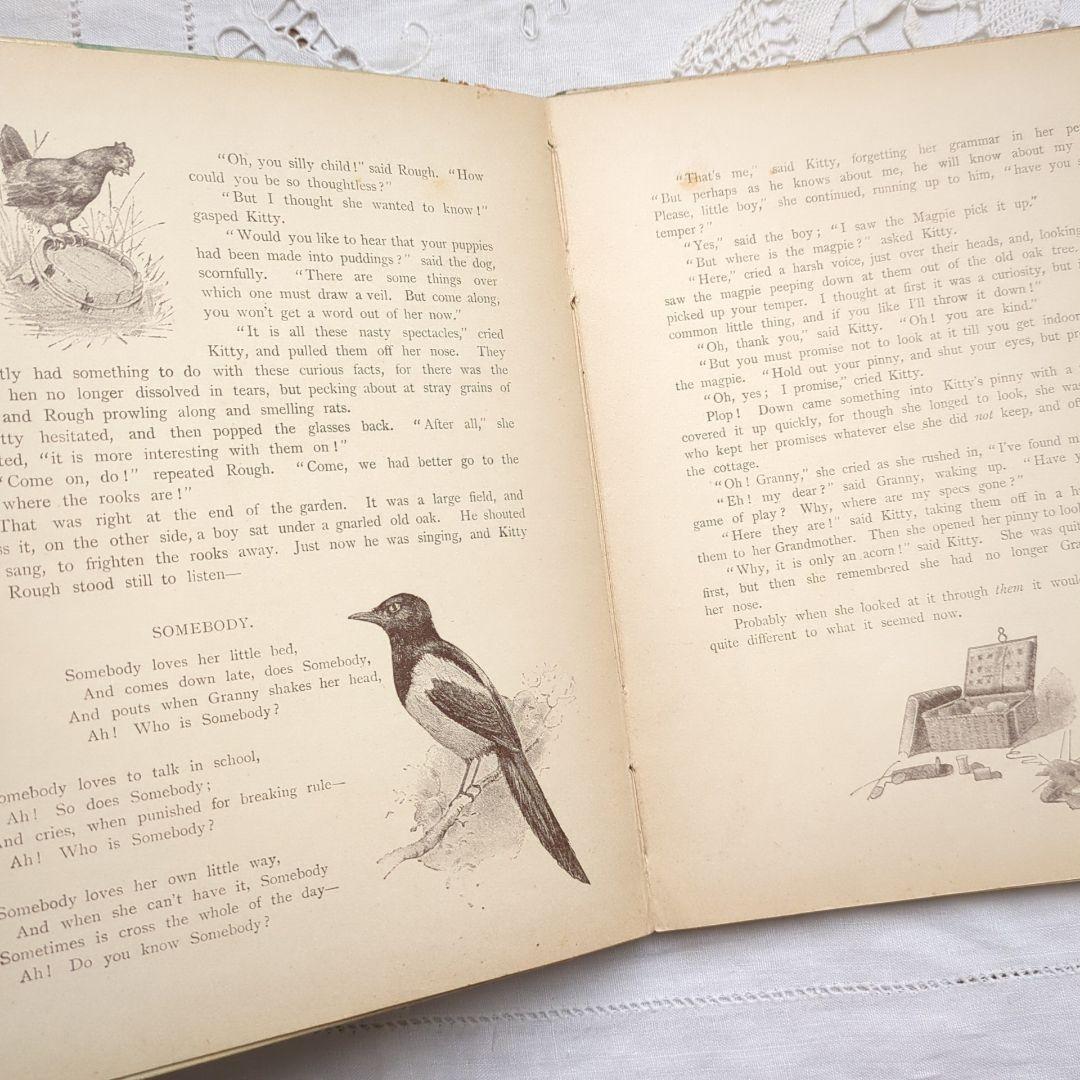 "Oh, you silly child!" said Rough. "How
could you be so thoughtless?"
"But I thought she wanted to know!"
gasped Kitty.
"Would you like to hear that your puppies
had been made into puddings?" said the dog,
scornfully. "There are some things over
which one must draw a veil. But come along,
you won't get a word out of her now."
"It is all these nasty spectacles," cried
Kitty, and pulled them off her nose. They
had something to do with these curious facts, for there was the
hen no longer dissolved in tears, but pecking about at stray grains of
and Rough prowling along and smelling rats.
hesitated, and then popped the glasses back. "After all," she
"it is more interesting with them on!"
"Come on, do!" repeated Rough. "Come, we had better go to the
where the rooks are!"
That was right at the end of the garden. It was a large field, and
it, on the other side, a boy sat under a gnarled old oak. He shouted
sang, to frighten the rooks away. Just now he was singing, and Kitty
Rough stood still to listen—
SOMEBODY.
Somebody loves her little bed,
And comes down late, does Somebody,
And pouts when Granny shakes her head,
Ah! Who is Somebody?
omebody loves to talk in school,
Ah! So does Somebody;
And cries, when punished for breaking rule—
Ah! Who is Somebody?
Somebody loves her own little way,
And when she can't have it, Somebody
Sometimes is cross the whole of the day—
Ah! Do you know Somebody?
"That's me," said Kitty, forgetting her grammar in her
"But perhaps as he knows about me, he will know about my
Please, little boy," she continued, running up to him, "have you
temper?"
"Yes," said the boy; "I saw the Magpie pick it up."
"But where is the magpie?" asked Kitty.
"Here," cried a harsh voice, just over their heads, and, looking
saw the magpie peeping down at them out of the old oak tree.
picked up your temper. I thought at first it was a curiosity, but
common little thing, and if you like I'll throw it down!"
"Oh, thank you," said Kitty. "Oh! you are kind."
"But you must promise not to look at it till you get
the magpie. "Hold out your pinny, and shut your eyes, but
"Oh, yes; I promise," cried Kitty.
Plop! Down came something into Kitty's pinny with a
covered it up quickly, for though she longed to look, she was
who kept her promises whatever else she did not keep, and
the cottage.
"Oh! Granny," she cried as she rushed in, "I've found
"Eh! my dear?" said Granny, waking up. "Have
game of play? Why, where are my specs gone?"
"Here they are!" said Kitty, taking them off in a
them to her Grandmother. Then she opened her pinny to
"Why, it is only an acorn!" said Kitty. She was
first, but then she remembered she had no longer
her nose.
Probably when she looked at it through them it
quite different to what it seemed now.